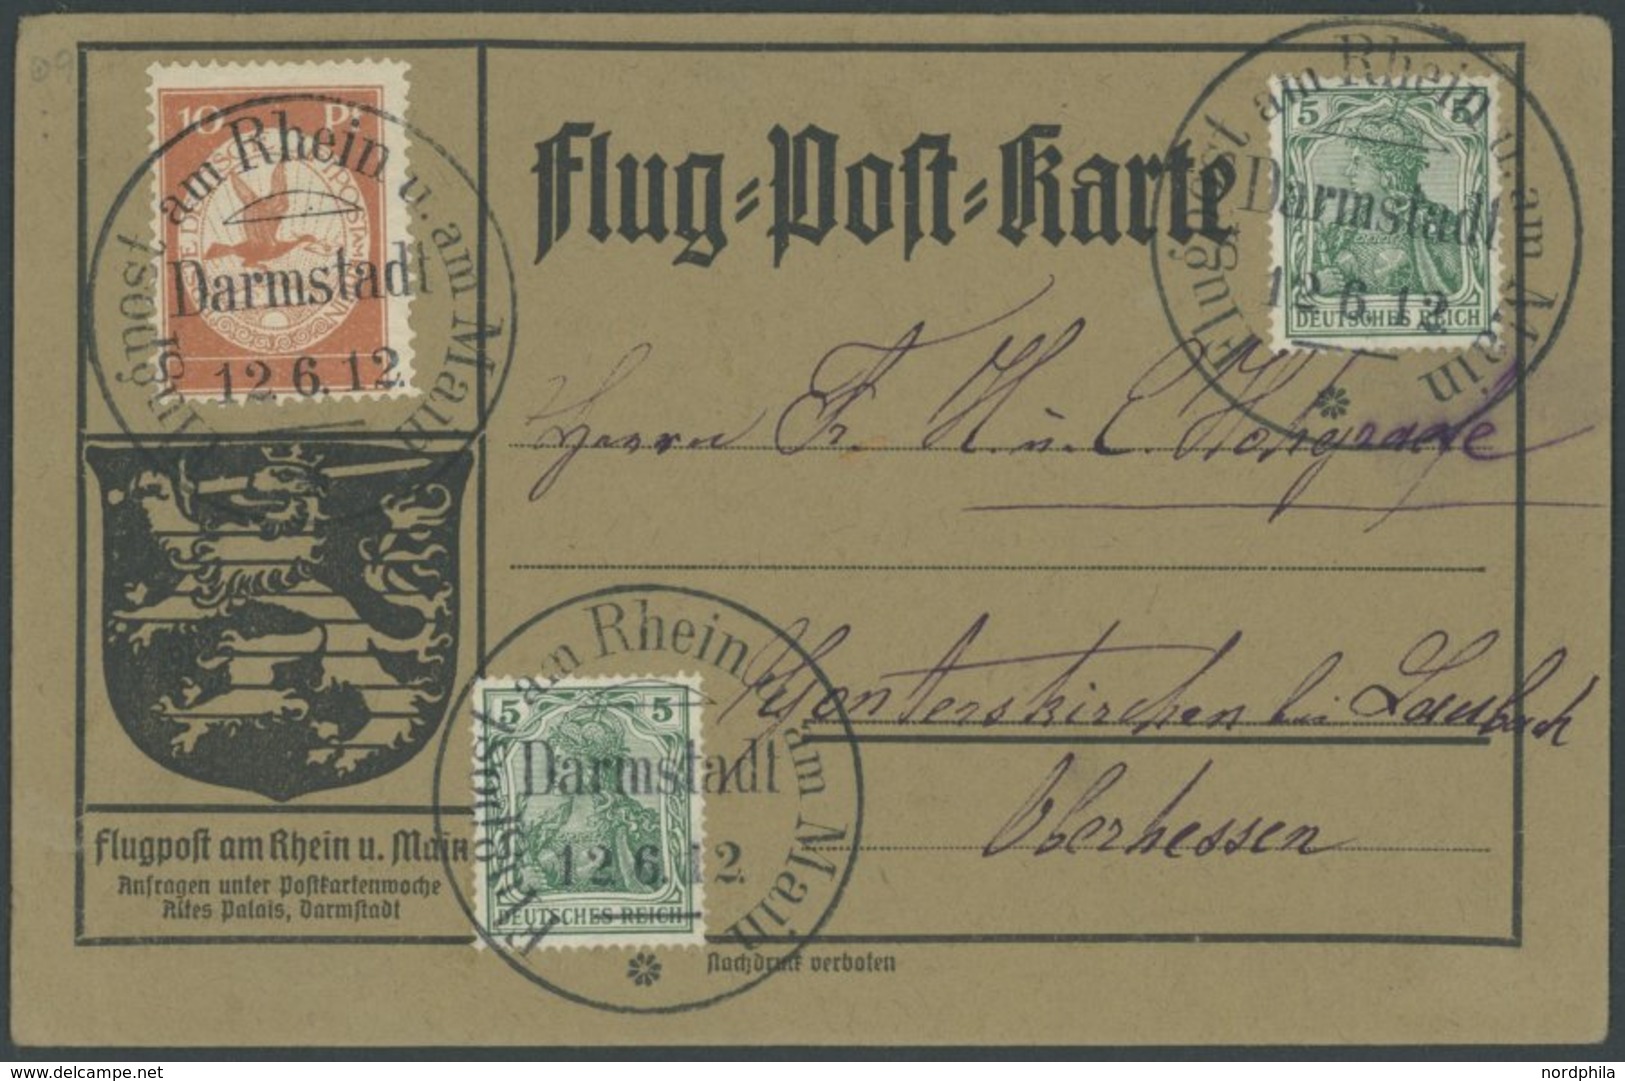 Flug=Post=Karte
10 Pf
Flugpost am Rhein u. am Main
Darmstadt
12.6.12.
5 5
DEUTSCHES REICH
Flugpost am Rhein u. am Main
Darmstadt
12.6.12.
Herrn Fr. H. u. C.
Gonterskirchen bei Laubach
Oberhessen
5 5
DEUTSCHES REICH
Flugpost am Rhein u. am Main
Darmstadt
12.6.12.
Flugpost am Rhein u. Main
Anfragen unter Postkartenwoche
Altes Palais, Darmstadt
Nachdruck verboten
nordphila